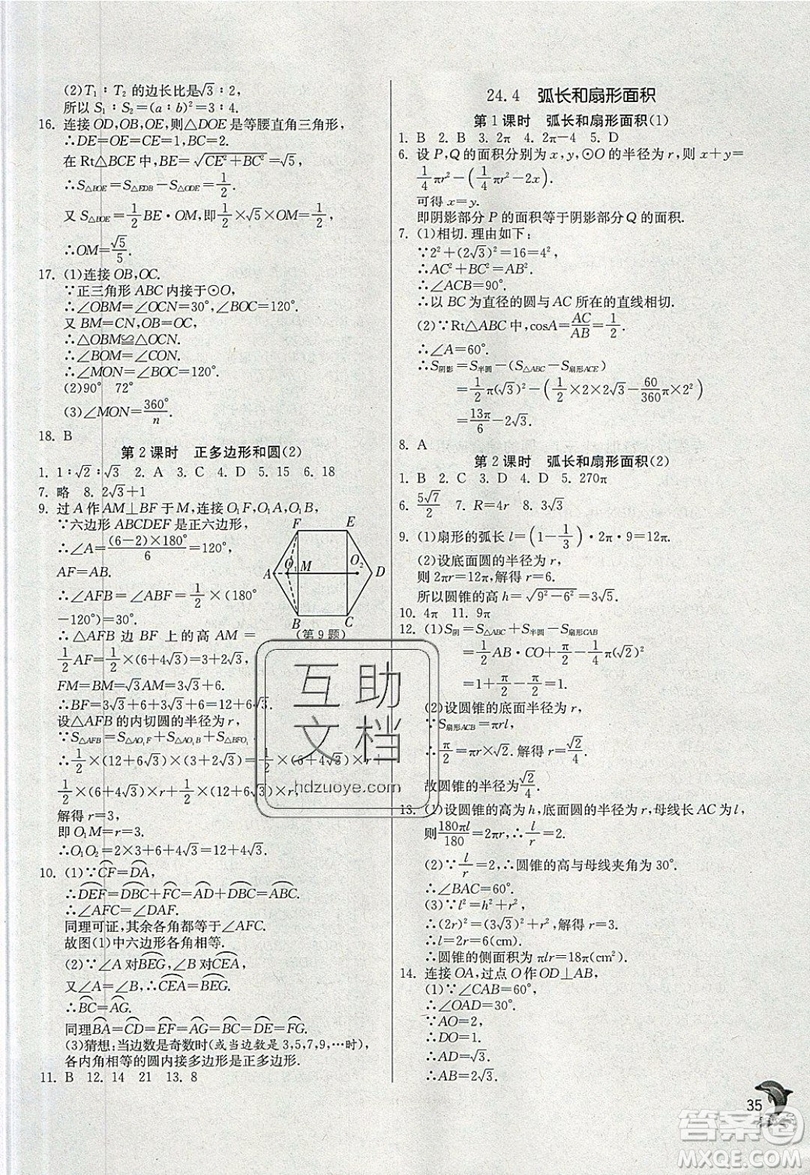 (2)T₁∶T₂ 的边长比是√3∶2,
所以 S₁∶S₂=(a∶b)²=3∶4.
16. 连接 OD,OB,OE,则△DOE 是等腰直角三角形,
∴DE=√2OE=√2.
在 Rt△BCE 中,BE=√(CE²+BC²)=√5.
∴S△BOE=S△EDB-S△ODE=1/2.
又 S△BOE=1/2 BE·OM,即1/2×√5×OM=1/2,
∴OM=√5/5.
17. (1)连接 OB,OC.
∵正三角形 ABC 内接于⊙O,
∴∠OBM=∠OCN=30°,∠BOC=120°.
又 BM=CN,OB=OC,
∴△OBM≌△OCN.
∴∠MON=∠BOC=120°.
(2)90° 72°
(3)∠MON=360°/n
18. B
第 2 课时 正多边形和圆(2)
1. 1∶√2∶√3 2. A 3. C 4. D 5. 15 6. 18
7. 略 8. 2√3+1
9. 过 A 作 AM⊥BF 于 M,连接 O₁F,O₁A,O₁B,
∵六边形 ABCDEF 是正六边形,
∴∠A=(6-2)×180°/6=120°,
AF=AB.
∴∠AFB=∠ABF=1/2×(180°
-120°)=30°.
F E
A O₁ M O₂ D
B C
(第 9 题)
∴△AFB 边 BF 上的高 AM=
1/2AF=1/2×(6+4√3)=3+2√3,
FM=BM=√3AM=3√3+6.
∴BF=3√3+6+3√3+6=12+6√3.
设△AFB 的内切圆的半径为 r,
∵S△AFB=S△AO₁F+S△AO₁B+S△BFO₁
∴1/2×(3+2√3)×(6√3+12)=1/2×(6+4√3)×r+
1/2×(6+4√3)×r+1/2×(12+6√3)×r,
解得 r=3.
即 O₁M=r=3.
∴O₁O₂=2×3+6+4√3=12+4√3.
10. (1)∵CF=DA,
∴DEF=DEF+CD=DEF+AF=DA.
∴∠AFC=∠DAF.
同理可证,其余各角都等于∠AFC.
故图(1)中六边形各角相等.
(2)∵∠A对BEG,∠B对CEA,
又∵∠A=∠B,∴CEA=BEG.
∴BC=AG.
同理BA=CD=EF=AG=BC=DE=FG.
(3)猜想:当边数是奇数时(或当边数是 3,5,7,9,…时),
各内角相等的圆内接多边形是正多边形.
11. B 12. 14 21 13. 8
24.4 弧长和扇形面积
第 1 课时 弧长和扇形面积(1)
1. B 2. B 3. 2π 4. 2π-4 5. D
6. 设 P,Q 的面积分别为 x,y,⊙O 的半径为 r,则 x-y=
1/4πr²-(1/4πr²-2x).
可得 x=y.
即阴影部分 P 的面积等于阴影部分 Q 的面积.
7. (1)相切.理由如下:
∵2²+(2√3)²=16=4²,
∴AC²+BC²=AB².
∴∠ACB=90°.
∴以 BC 为直径的圆与 AC 所在的直线相切.
(2)∵Rt△ABC 中,cosA=AC/AB=1/2,
∴∠A=60°.
∴S阴影=S半圆-(S△ABC-S扇形ACE)
=1/2π(√3)²-(1/2×2×2√3-60/360π×2²)
=13π/6-2√3.
8. A
第 2 课时 弧长和扇形面积(2)
1. B 2. B 3. D 4. D 5. 270π
6. 5√7/2 7. R=4r 8. 3√3
9. (1)扇形的弧长 l=(1-1/3)·2π·9=12π.
(2)设底面圆的半径为 r,
则 2πr=12π,解得 r=6.
所以圆锥的高 h=√(9²-6²)=3√5.
10. 4π 11. 9π
12. (1)S阴=S△ABC+S半圆-S扇形CAB
=1/2AB·CO+1/2π-1/4π(√2)²
=1+π/2-π/2=1.
(2)设圆锥的底面半径为 r,
∵S扇形ACB=π/2=πrl,
∴π/2=√2πr. 解得 r=√2/4.
故圆锥的半径为√2/4.
13. (1)设圆锥的高为 h,底面圆的半径为 r,母线长 AC 为 l,
则180πl/180=2πr,l/r=2.
(2)∵l/r=2,∴圆锥的高与母线夹角为 30°.
∴∠BAC=60°.
(3)∵l²=h²+r²,
∴(2r)²=(3√3)²+r²,解得 r=3(cm).
∴l=2r=6(cm).
∴圆锥的侧面积为 πlr=18π(cm²).
14. 连接 OA,过点 O 作 OD⊥AB,
(1)∵∠CAB=60°,
∴∠OAD=30°.
∵AO=2,
∴DO=1.
∴AD=√3.
∴AB=2√3.
35
互助
文档
hdzuoye.com
答案圈
MXQE.COM